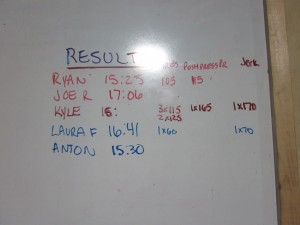 RESULT PUSHPRESS PR Jerk
RYAN 15:25 105 115
JOE R 17:06
KYLE 15: 3x115 1x165 1x170
2x125
LAURA F 16:41 1x60 1x70
ANTON 15:30